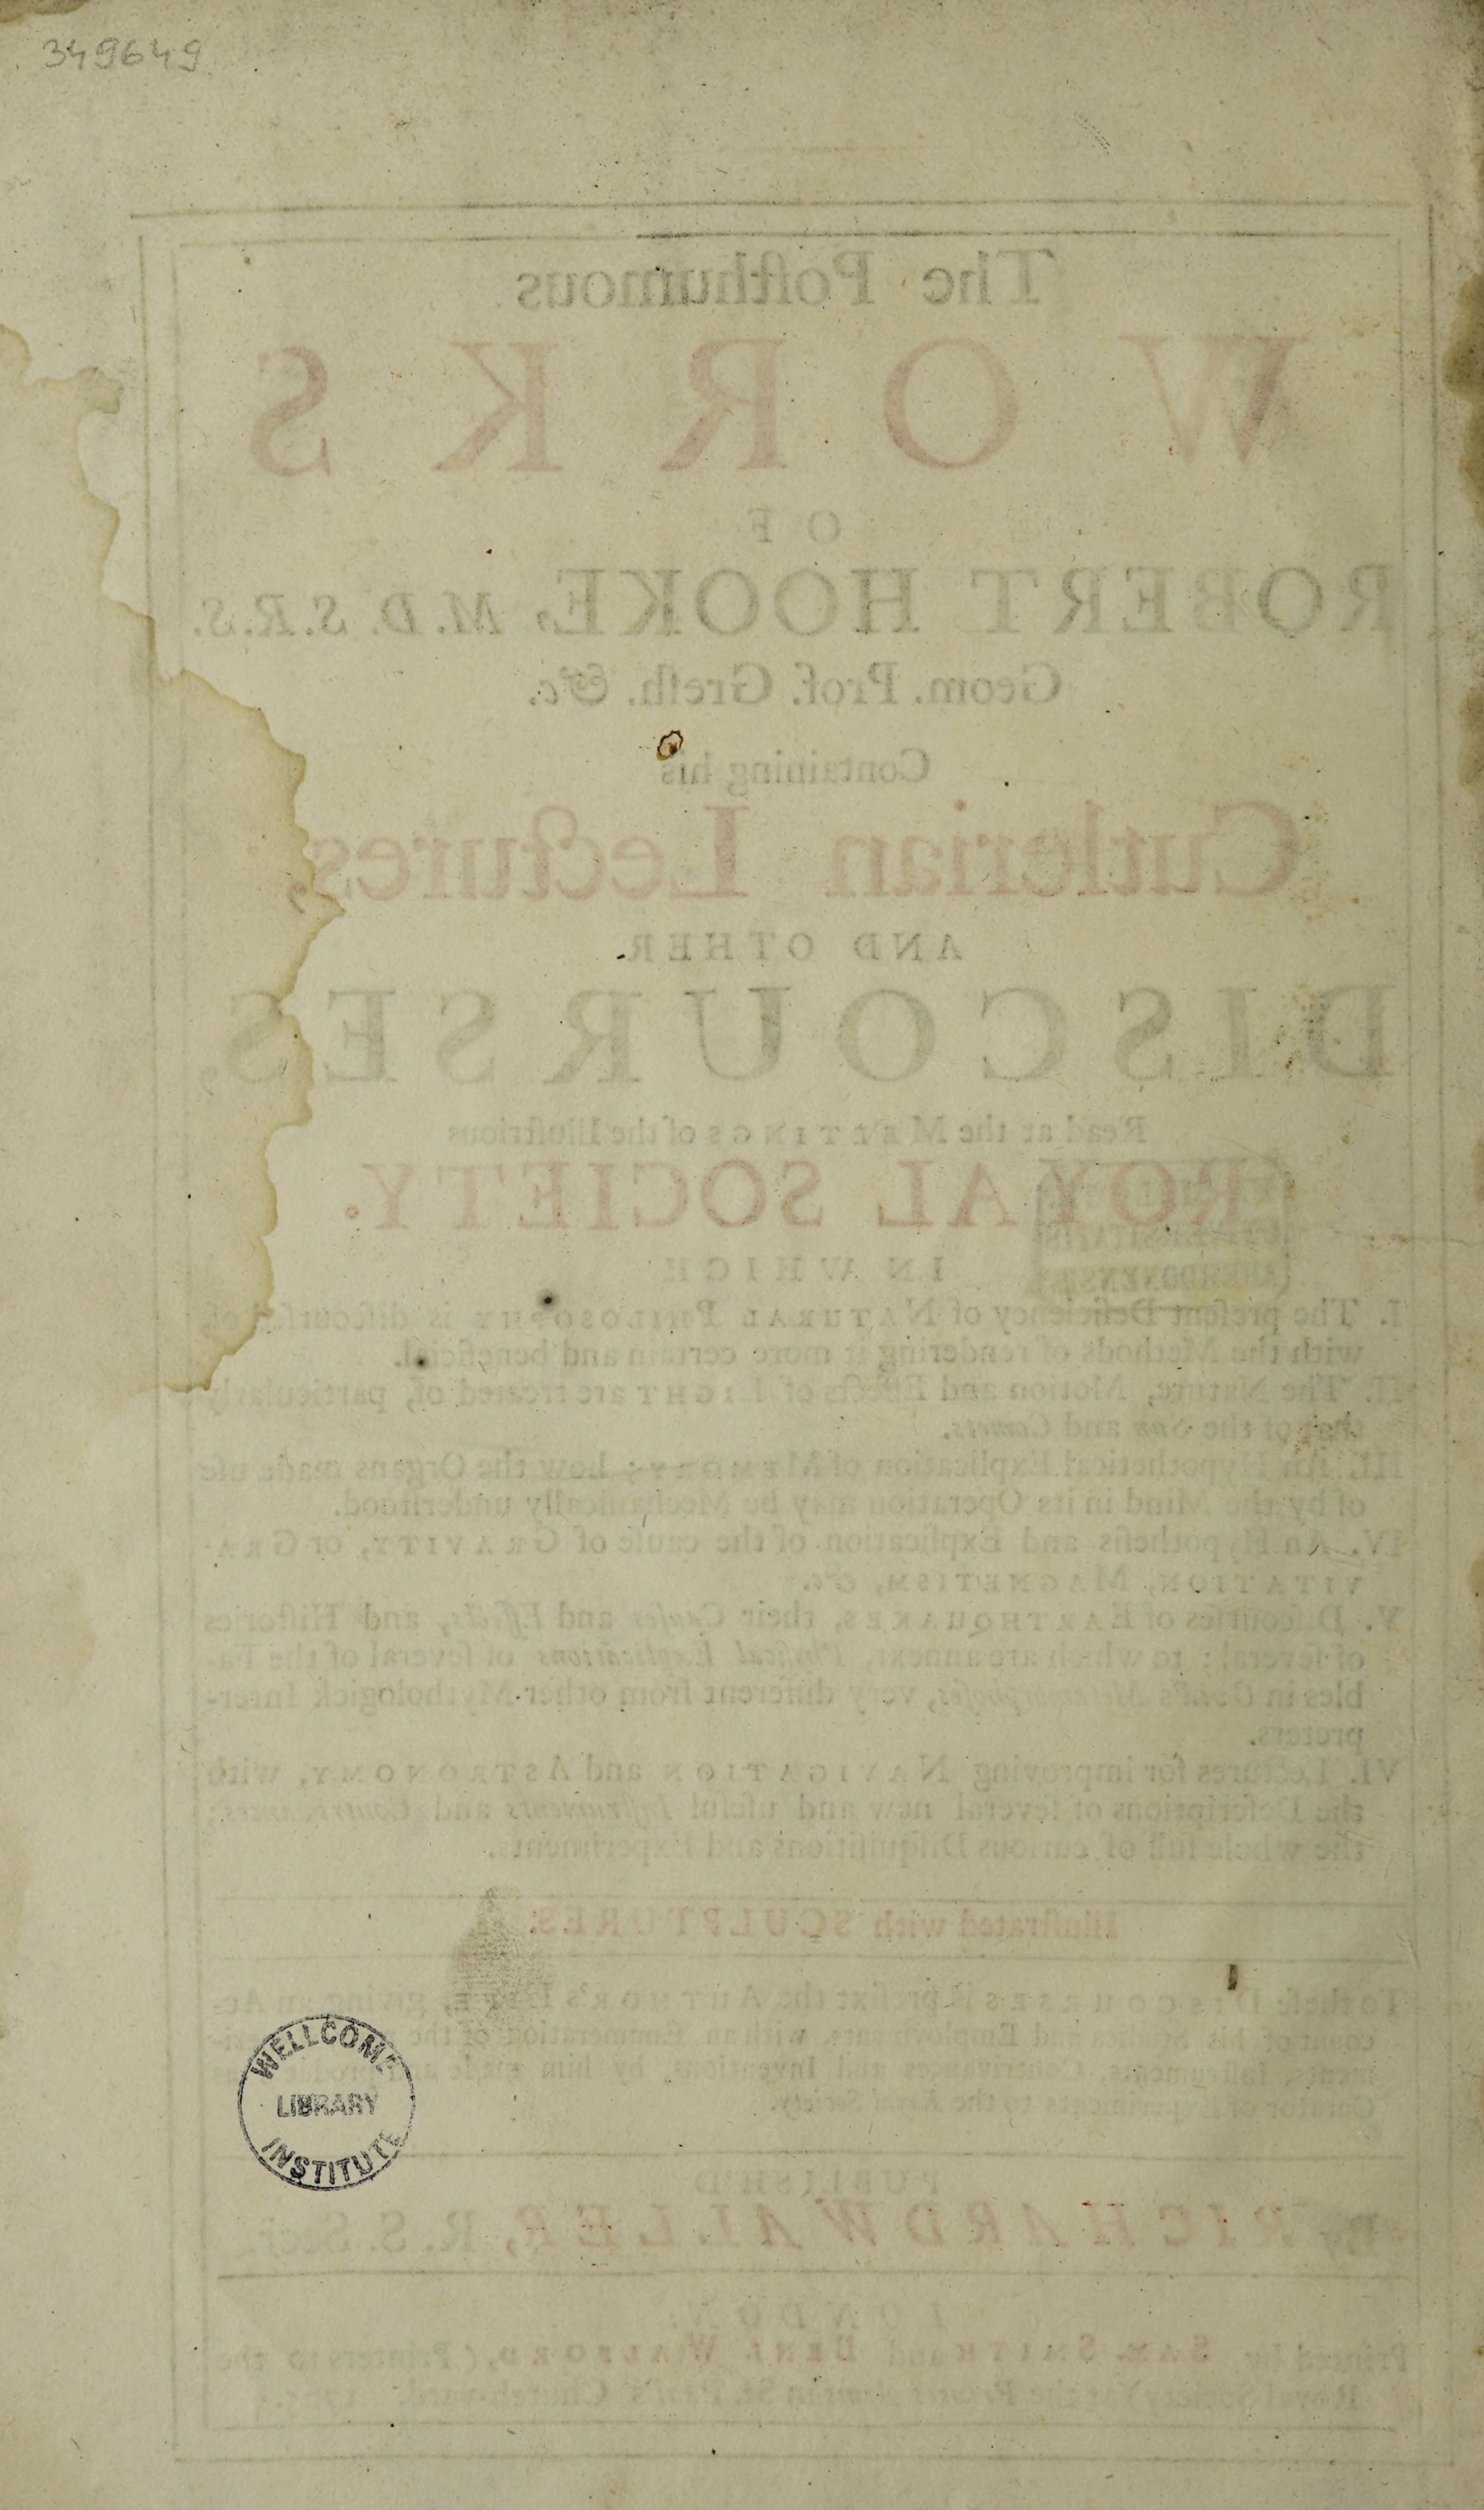 349649
The Poſthumous
WORKS
OF
ROBERT HOOKE, M.D. S.R.S.
Geom. Prof. Greſh. &c.
Containing his
Cutlerian Lectures,
AND OTHER
DISCOURSES,
Read at the MEETINGS of the Illuſtrious
ROYAL SOCIETY.
IN WHICH
I. The preſent Deficiency of NATURAL PHILOSOPHY is diſcourſed of,
with the Methods of rendering it more certain and beneficial.
II. The Nature, Motion and Effects of LIGHT are treated of, particularly
that of the Sun and Comets.
III. An Hypothetical Explication of MEMORY; how the Organs made uſe
of by the Mind in its Operation may be Mechanically underſtood.
IV. An Hypotheſis and Explication of the cauſe of GRAVITY, or GRA-
VITATION, MAGNETISM, &c.
V. Diſcourſes of EARTHQUAKES, their Cauſes and Effects, and Hiſtories
of ſeveral; to which are annext, Phyſical Explications of ſeveral of the Fa-
bles in Ovid's Metamorphoſes, very different from other Mythologick Inter-
preters.
VI. Lectures for improving NAVIGATION and ASTRONOMY, with
the Deſcriptions of ſeveral new and uſeful Inſtruments and Contrivances;
the whole full of curious Diſquiſitions and Experiments.
Illuſtrated with SCULPTURES.
To theſe DISCOURSES is prefixt the AUTHOR'S LIFE, giving an Ac-
count of his and Employments, with Enumeration of the
ments, Inſtruments, Contrivances and Inventions, by him made and produced as
Curator of Experiments to the Royal Society.
PUBLISHED
By RICHARD WALLER, R. S. Secr.
LONDON:
Printed by SAM. SMITH and BENJ. WALFORD, (Printers to the
Royal Society) at the Princes Arms in St. Paul's Church-yard. 1705.
WELLCOME
LIBRARY
INSTITUTE